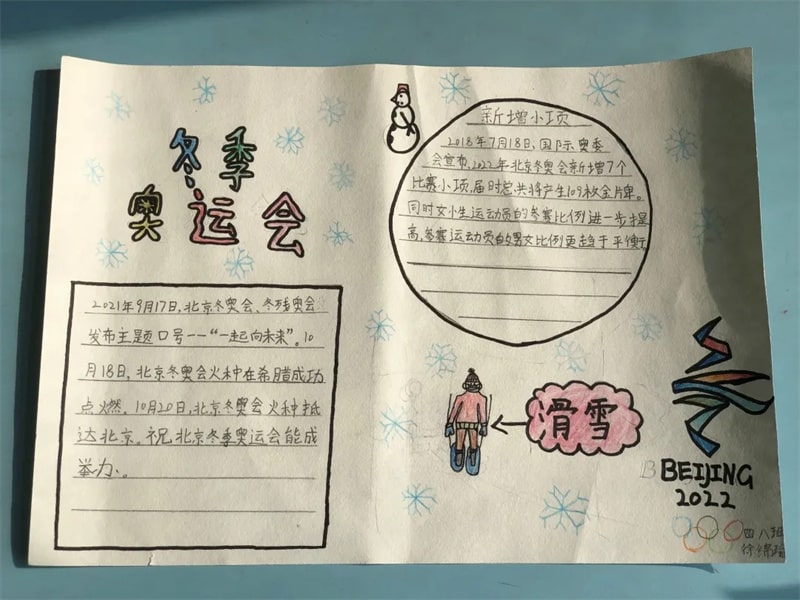 冬季
奥运会
2021年9月17日,北京冬奥会、冬残奥会
发布主题口号——“一起向未来”。10
月18日,北京冬奥会火种在希腊成功
点燃。10月20日,北京冬奥会火种抵
达北京。祝北京冬季奥运会能成
举办。
新增小项
2018年7月18日,国际奥委
会宣布,2022年北京冬奥会新增7个
比赛小项,届时总共将产生109枚金牌。
同时女性运动员的参赛比例进一步提
高,参赛运动员的男女比例更趋于平衡
滑雪
BEIJING
2022
四八班